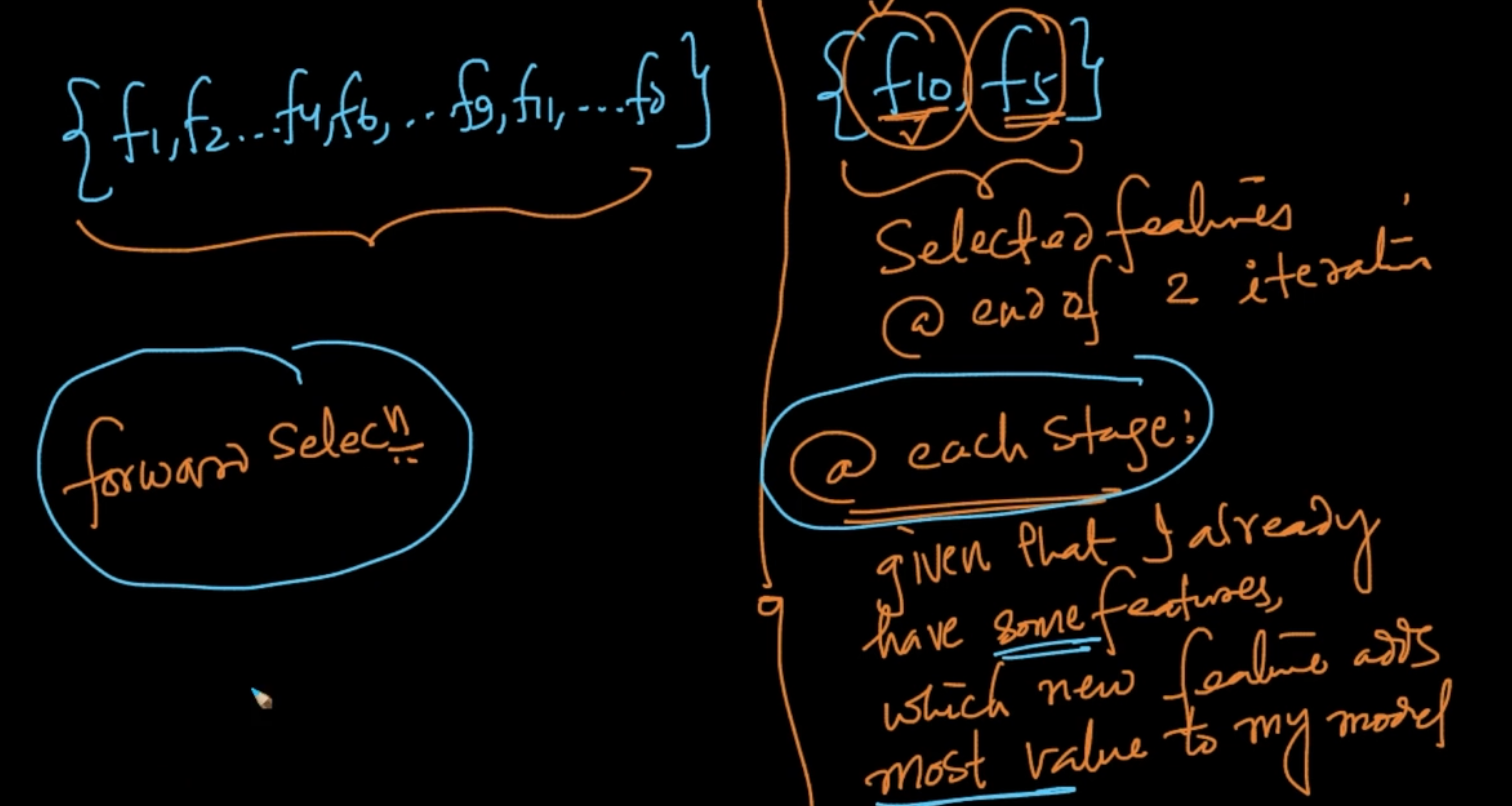 {f1, f2 ... f4, f6, ... f9, f11, ... fd}
forward selecn
{f10, f5}
Selected features
@ end of 2 iteratin
@ each stage:
given that I already
have some features,
which new feature adds
most value to my model